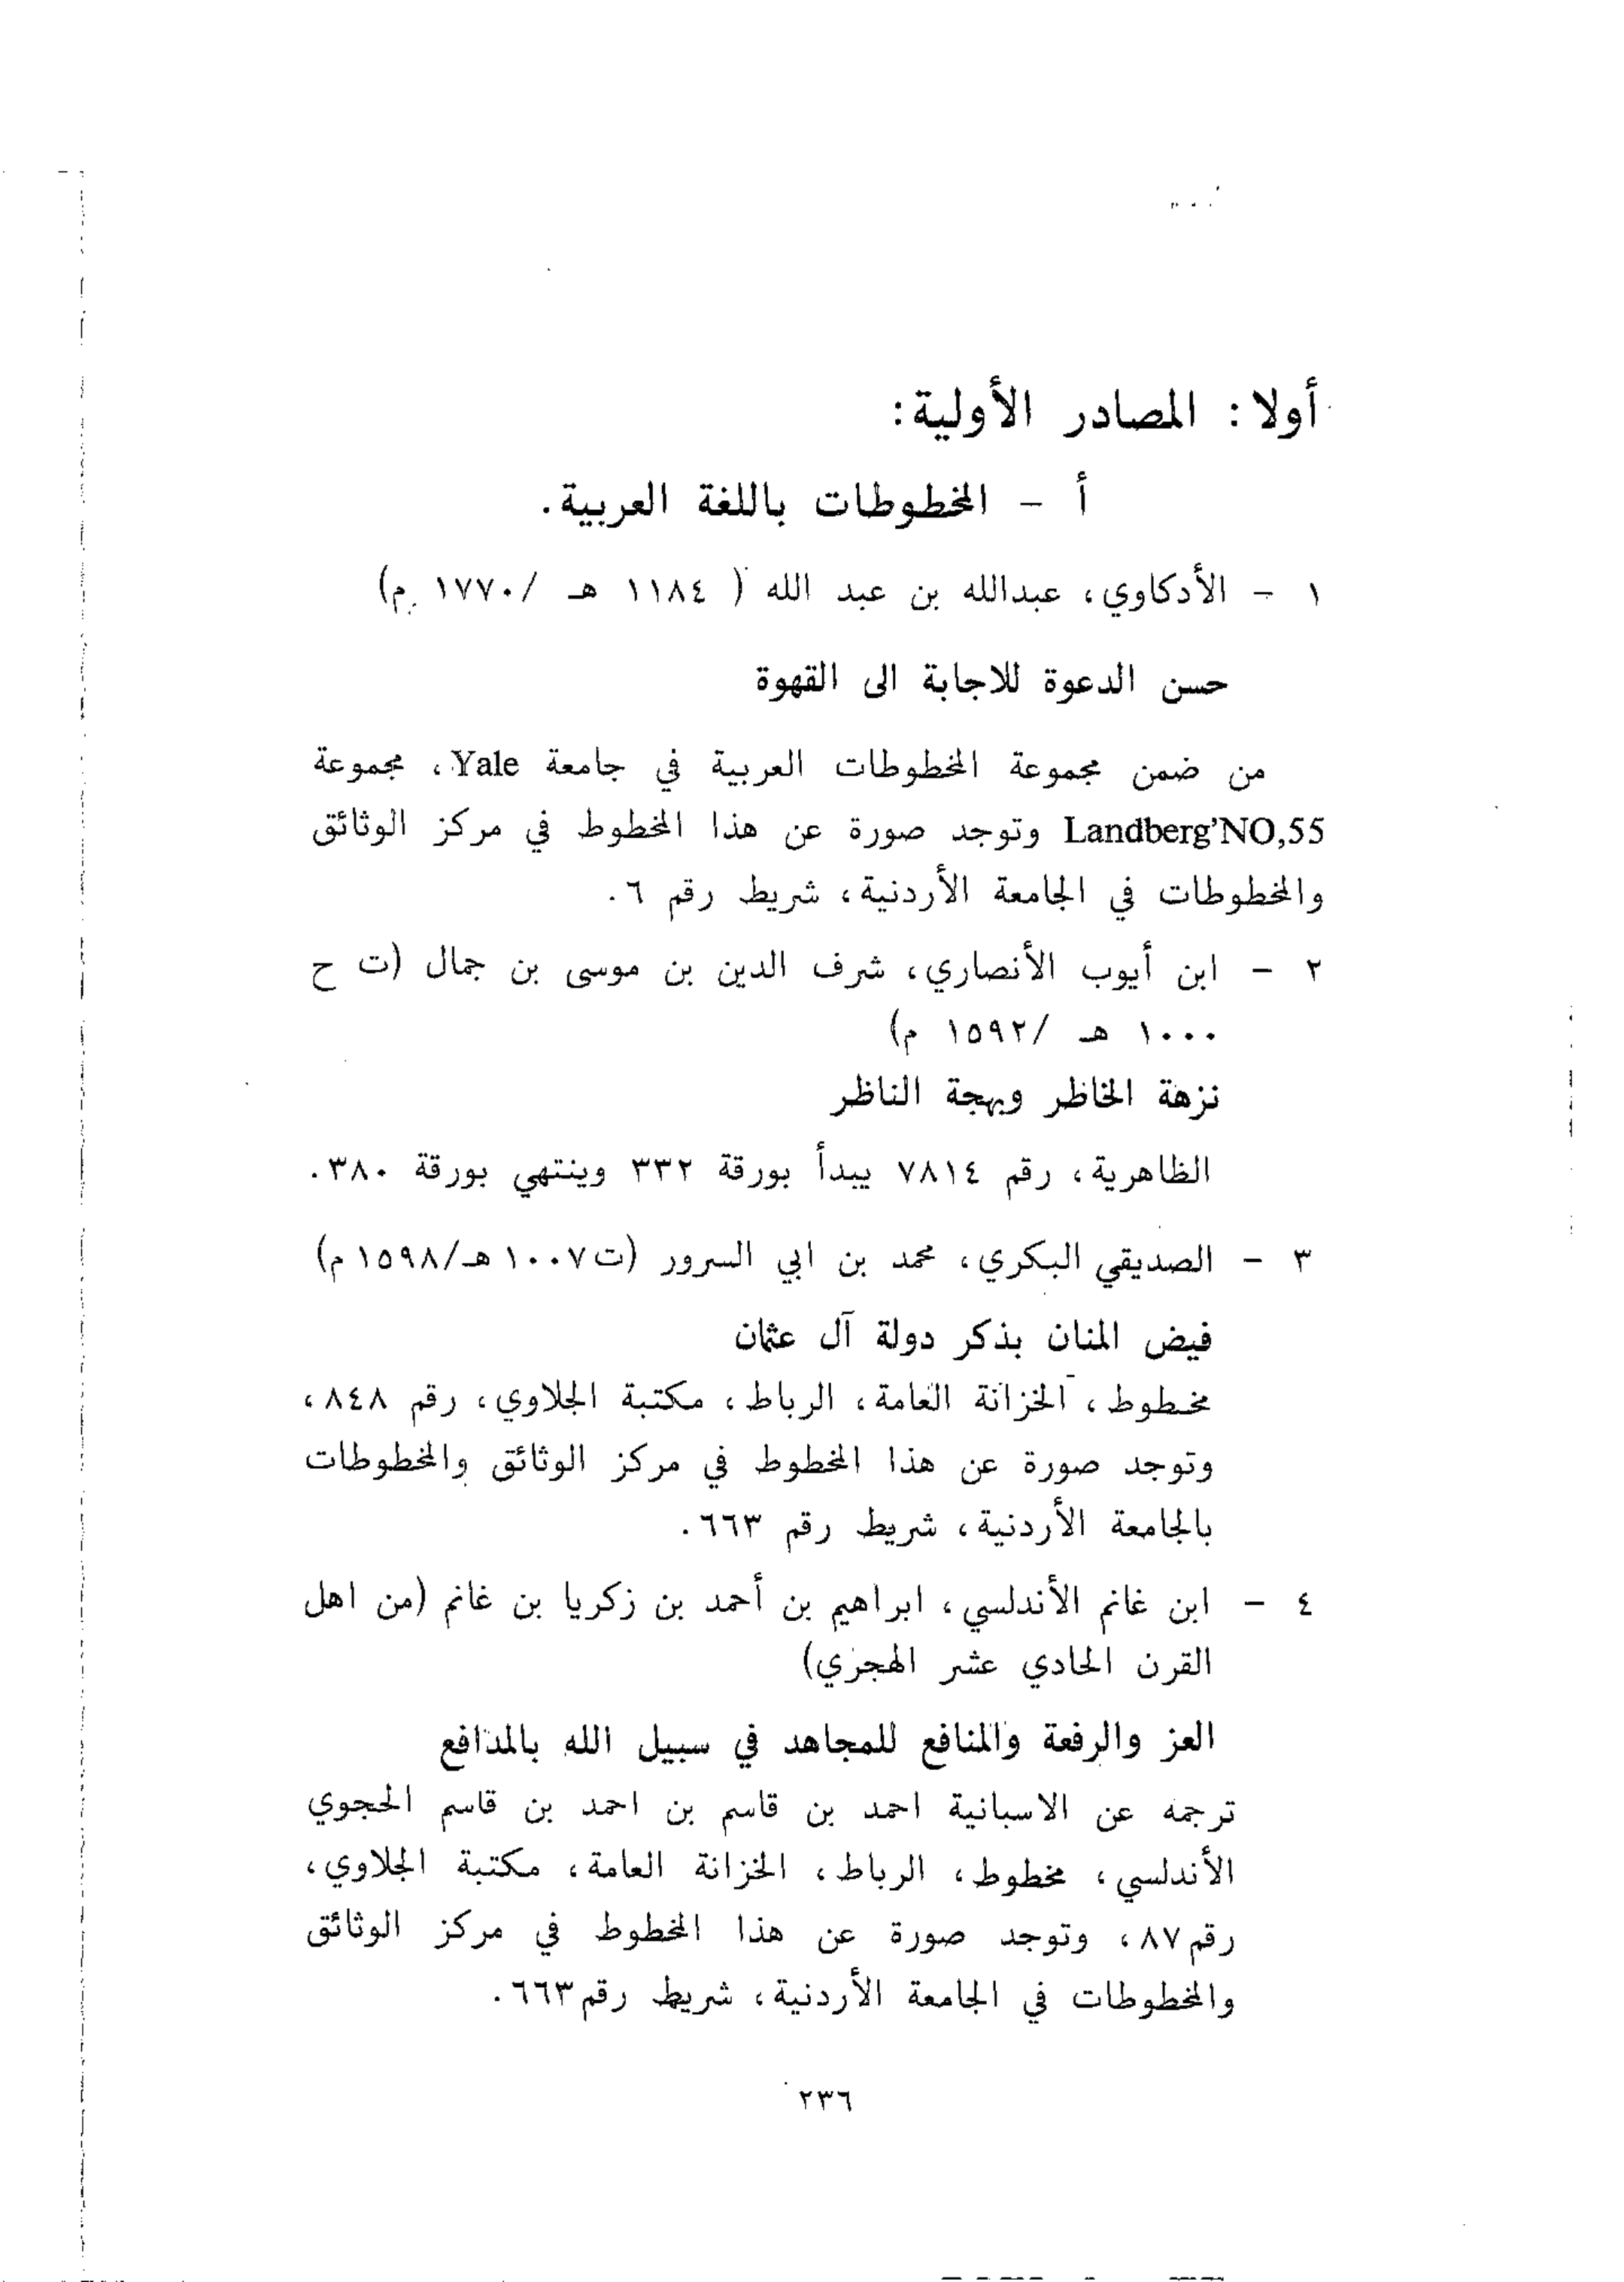 أولا: المصادر الأولية:
أ - المخطوطات باللغة العربية.
١ - الأدكاوي، عبدالله بن عبد الله ( ١١٨٤ هـ /١٧٧٠ م)
حسن الدعوة للاجابة الى القهوة
من ضمن مجموعة المخطوطات العربية في جامعة Yale، مجموعة
Landberg'NO,55 وتوجد صورة عن هذا المخطوط في مركز الوثائق
والمخطوطات في الجامعة الأردنية، شريط رقم ٦.
٢ - ابن أيوب الأنصاري، شرف الدين بن موسى بن جمال (ت ح
١٠٠٠ هـ /١٥٩٢ م)
نزهة الخاظر وبهجة الناظر
الظاهرية، رقم ٧٨١٤ يبدأ بورقة ٣٣٢ وينتهي بورقة ٣٨٠.
٣ - الصديقي البكري، محمد بن ابي السرور (ت١٠٠٧هـ/١٥٩٨م)
فيض المنان بذكر دولة آل عثمان
مخطوط، الخزانة العامة، الرباط، مكتبة الجلاوي، رقم ٨٤٨،
وتوجد صورة عن هذا المخطوط في مركز الوثائق والمخطوطات
بالجامعة الأردنية، شريط رقم ٦٦٣.
٤ - ابن غانم الأندلسي، ابراهيم بن أحمد بن زكريا بن غانم (من اهل
القرن الحادي عشر الهجري)
العز والرفعة والمنافع للمجاهد في سبيل الله بالمدافع
ترجمه عن الاسبانية احمد بن قاسم بن احمد بن قاسم الحجوي
الأندلسي، مخطوط، الرباط، الخزانة العامة، مكتبة الجلاوي،
رقم ٨٧، وتوجد صورة عن هذا المخطوط في مركز الوثائق
والمخطوطات في الجامعة الأردنية، شريط رقم ٦٦٣.
٢٣٦